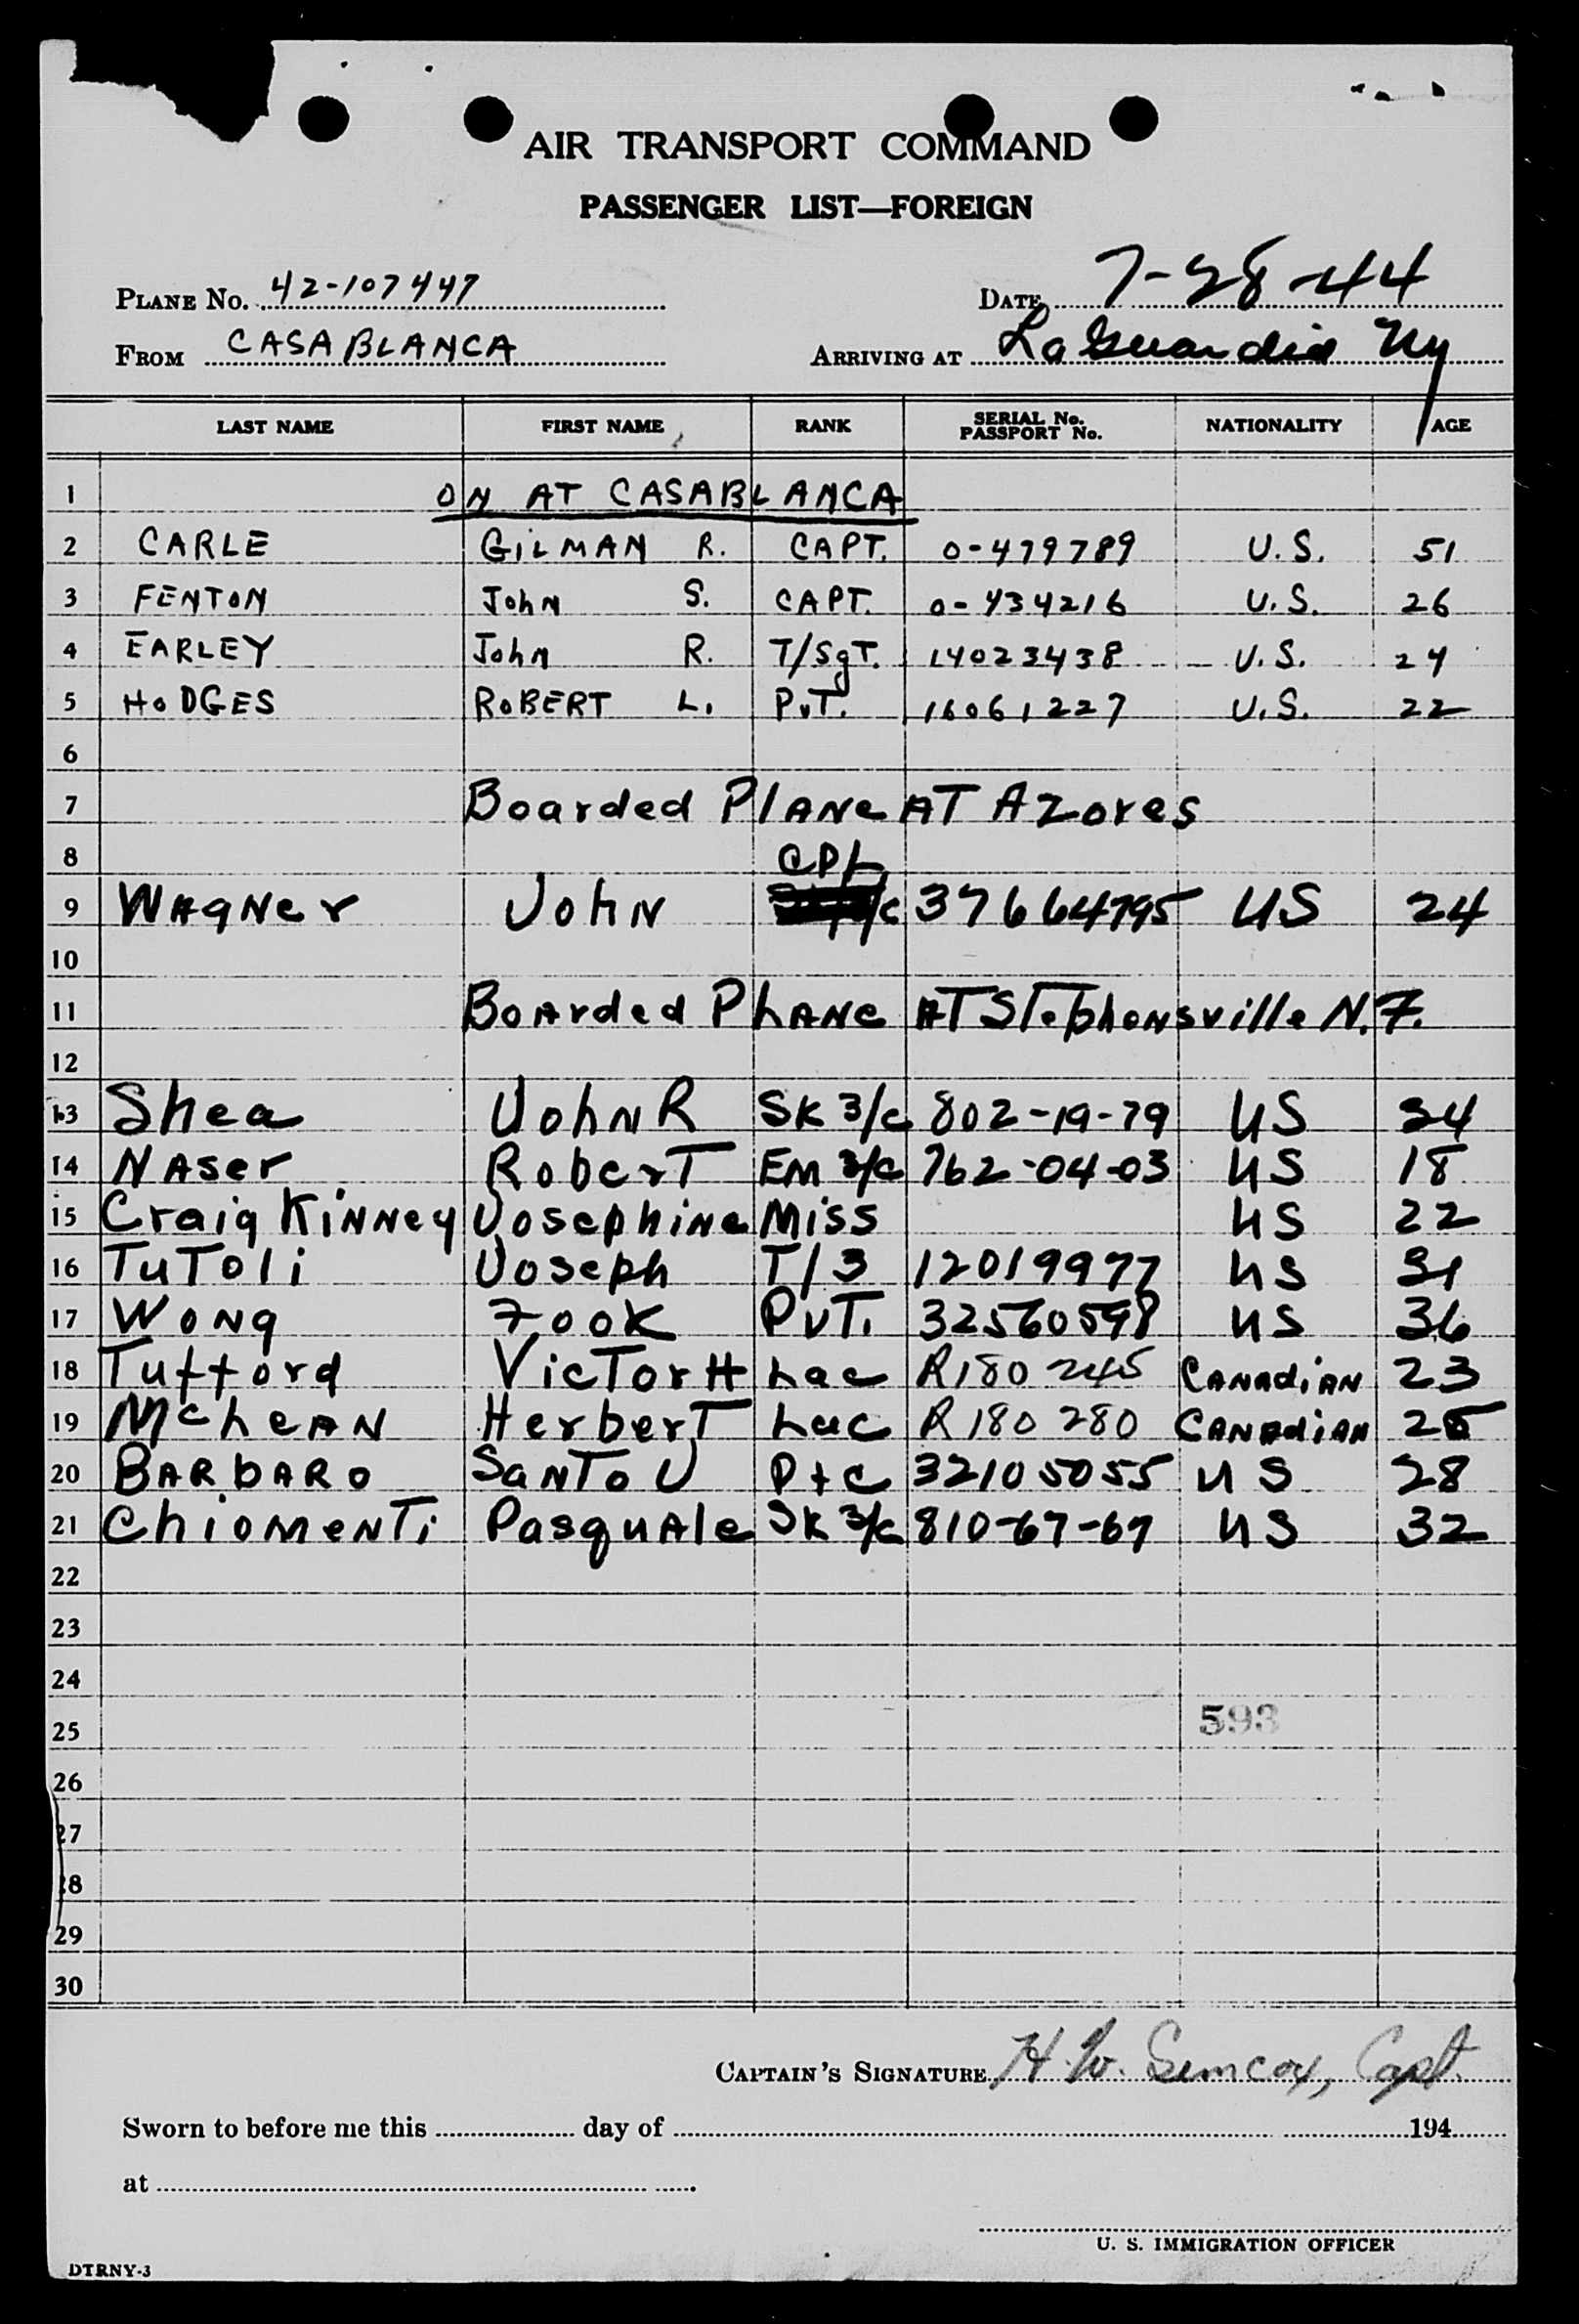 AIR TRANSPORT COMMAND
PASSENGER LIST—FOREIGN
PLANE No. 42-107447 DATE 7-28-44
FROM CASABLANCA ARRIVING AT LaGuardia Ny
LAST NAME FIRST NAME RANK SERIAL No. PASSPORT No. NATIONALITY AGE
1 ON AT CASABLANCA
2 CARLE GILMAN R. CAPT. O-479789 U.S. 51
3 FENTON John S. CAPT. O-434216 U.S. 26
4 EARLEY John R. T/SgT. 14023438 U.S. 24
5 HODGES ROBERT L. PvT. 16061227 U.S. 22
6
7 Boarded Plane AT Azores
8 CPL
9 Wagner John 37664795 US 24
10
11 Boarded Plane AT Stephonsville N.F.
12
13 Shea John R SK 3/c 802-19-79 US 34
14 Naser Robert EM 3/c 762-04-03 US 18
15 Craig Kinney Josephine Miss US 22
16 Tutoli Joseph T/3 12019977 US 31
17 Wong Fook PvT. 32560598 US 36
18 Tufford Victor H Lac R180245 Canadian 23
19 McLean Herbert Lac R180280 Canadian 25
20 Barbaro Santo J Pfc 32105055 US 28
21 Chiomenti Pasquale SK 3/c 810-67-67 US 32
22
23
24
25 593
26
27
28
29
30
CAPTAIN'S SIGNATURE H.W. Simcox, Capt.
Sworn to before me this day of 194
at
U. S. IMMIGRATION OFFICER
DTRNY-3